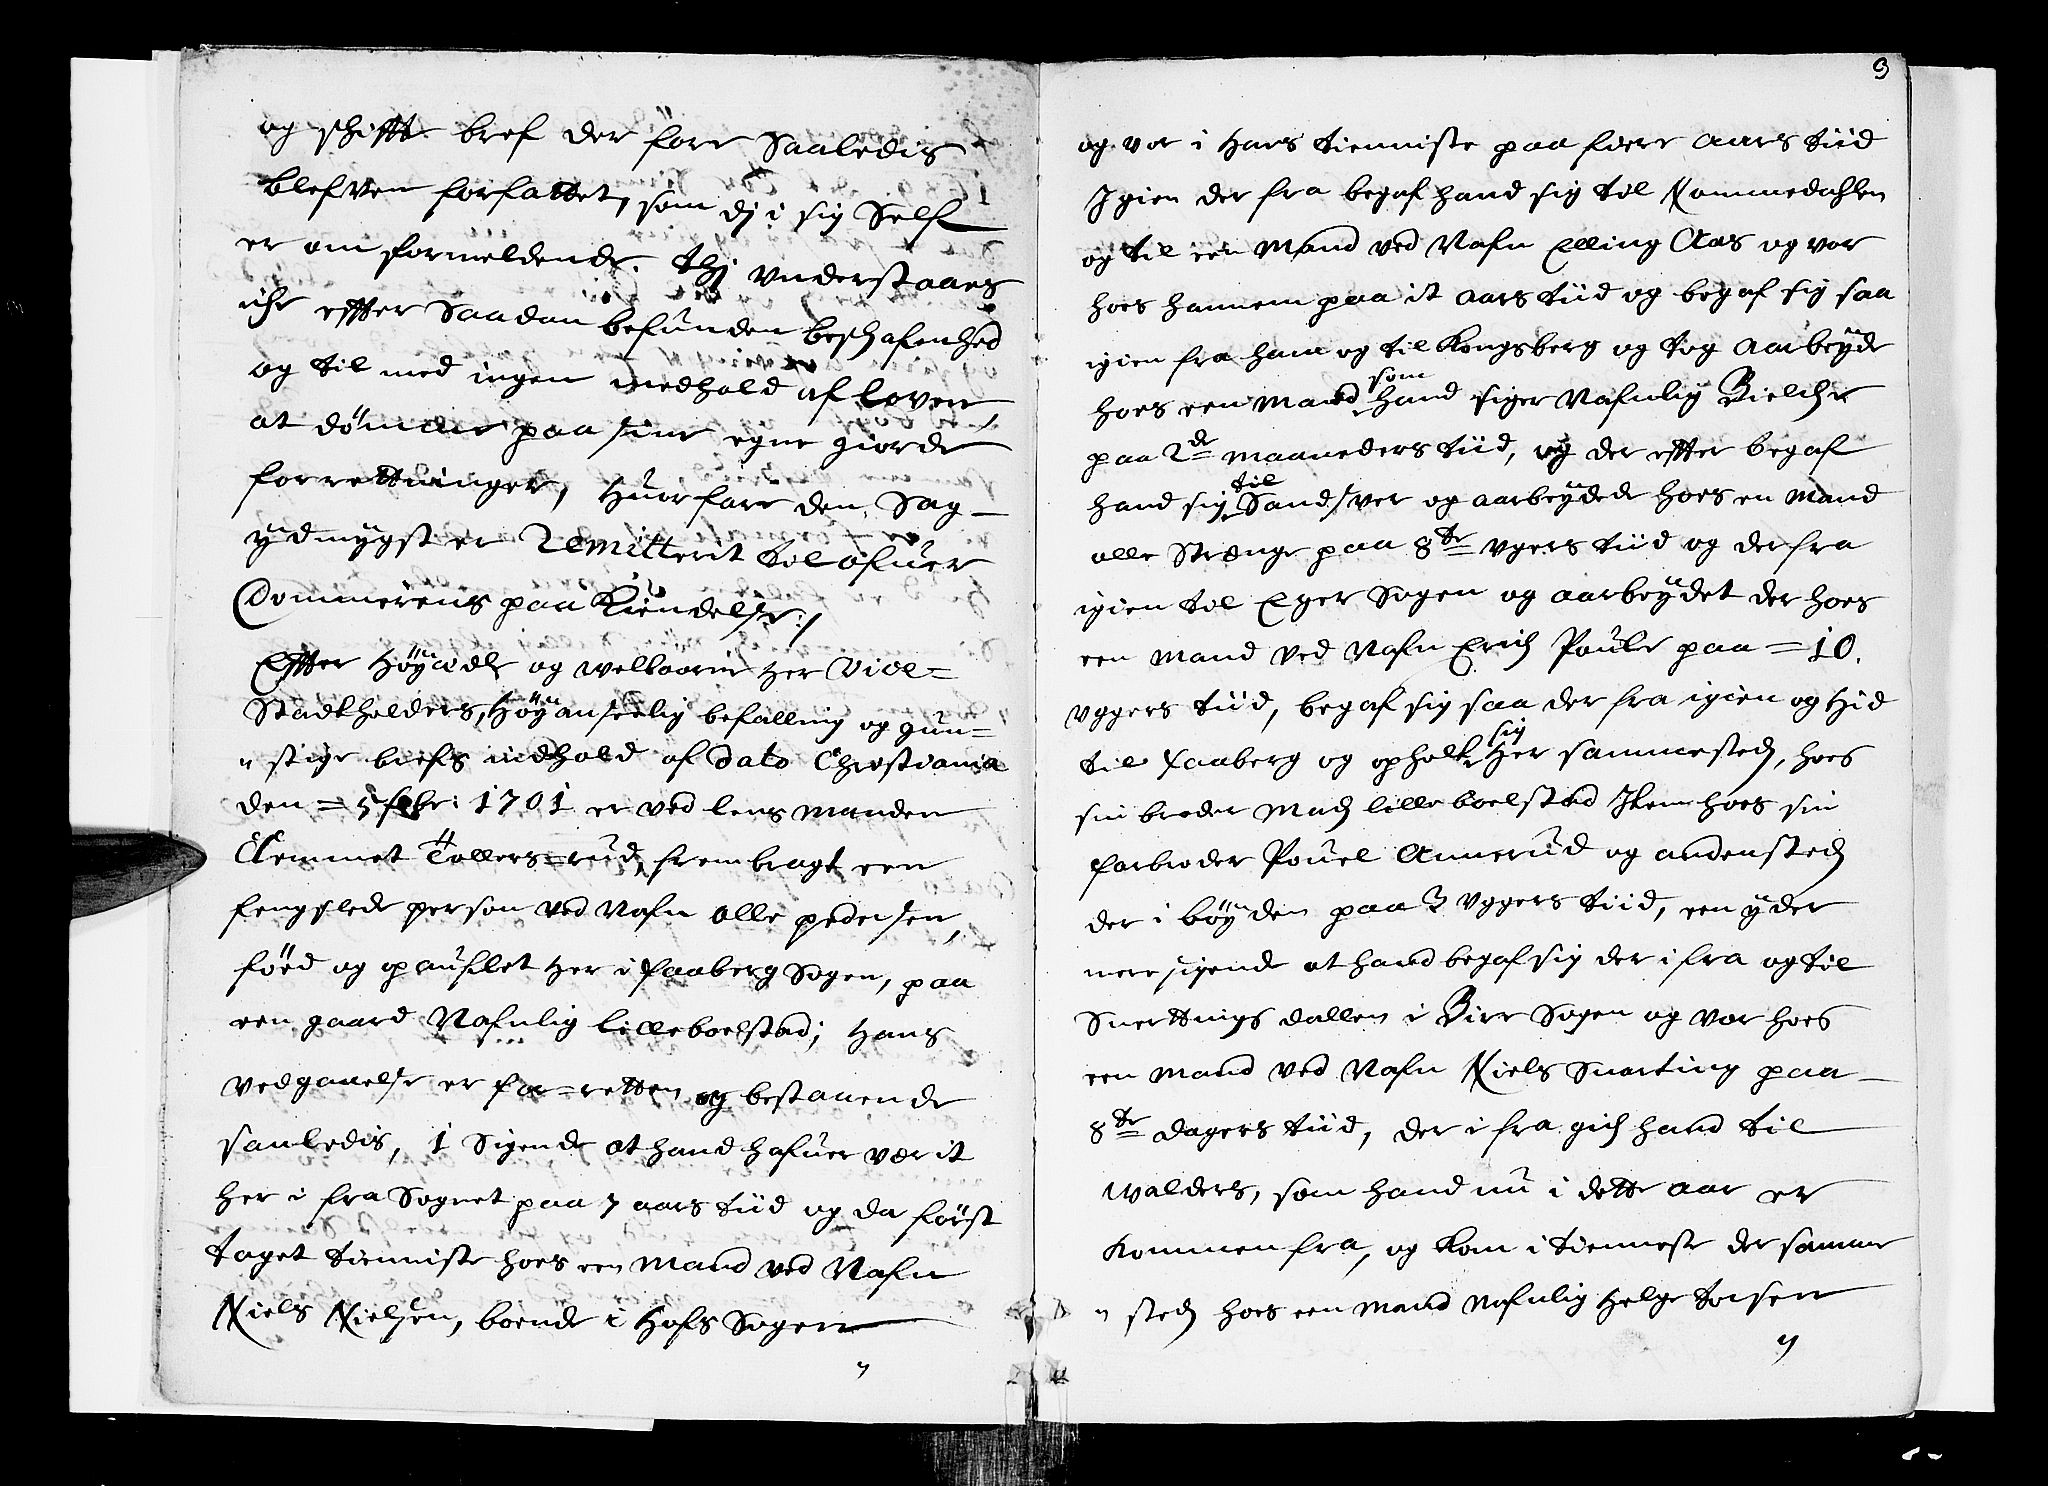 og schifft bref der fore Saaledis
blefven forfattet, som dj i sig Self
er om formeldende. thj understaaes
iche effter Saadan befunden beschafenhed
og til med ingen medhold af loven,
at dømme paa sine egne giorde
forrettninger, huorfore den Sag
ydmygst er Remitterit til ofuer
Dommerens paa Kiendelse:/
Effter Høyædle og welbaarne Her Vice=
Stadtholders, Høyanseelig befalling og gun=
"stige brefs indhold af dato Christiania
den = 5 febr: 1701 er ved lens manden
Clemmet Tollers=rud, frembragt een
fengslede person ved Nafn olle pedersen,
føed og opausslet her i faaberg Sogen, paa
een gaard Nafnlig lilleboelstad; hans
vedgaaelse er for=retten og bestaaende
saaledis, i Sigende at hand hafuer værit
her i fra Sognet paa 7 aars tiid og da først
taget tienniste hoes een Mand ved Nafn
Niels Nielsen, boende i Hofs Sogen
"
3
og var i hans tienniste paa fiere aars tiid
Igien der fra begaf hand sig til Nommedahlen
og til een Mand ved Nafn Elling Aas og var
hoes hannem paa it aars tiid og begaf sig saa
igien fra ham og til Kongsberg og tog aarbeyde
hoes een Mand som hand siger Nafnlig Bielche
paa 2de maaneders tiid, og der effter begaf
hand sig til Sandsver og aarbeydede hoes en Mand
olle Strenge paa 8te ugers tiid og derfra
igien til Eger Sogen og aarbeydet der hoes
een Mand ved Nafn Erich Poule paa = 10.
uggers tiid, begaf sig saa der fra igien og hid
til faaberg og opholt sig her sammesteds, hoes
sin broder Mads lilleboelstad Item hoes sin
farbroder Pouel Annerud og andensteds
der i bøyden paa 3 uggers tiid, een yder
mere sigende at hand begaf sig der i fra og til
Snerttings dallen i Birre Sogen og var hoes
een Mand ved Nafn Niels Snerting paa
8te dagers tiid, der i fra gich hand til
walders, som hand nu i dette aar er
kommen fra, og kom i tienneste der samme
"steds hoes een mand nafnlig Helge torsen
"